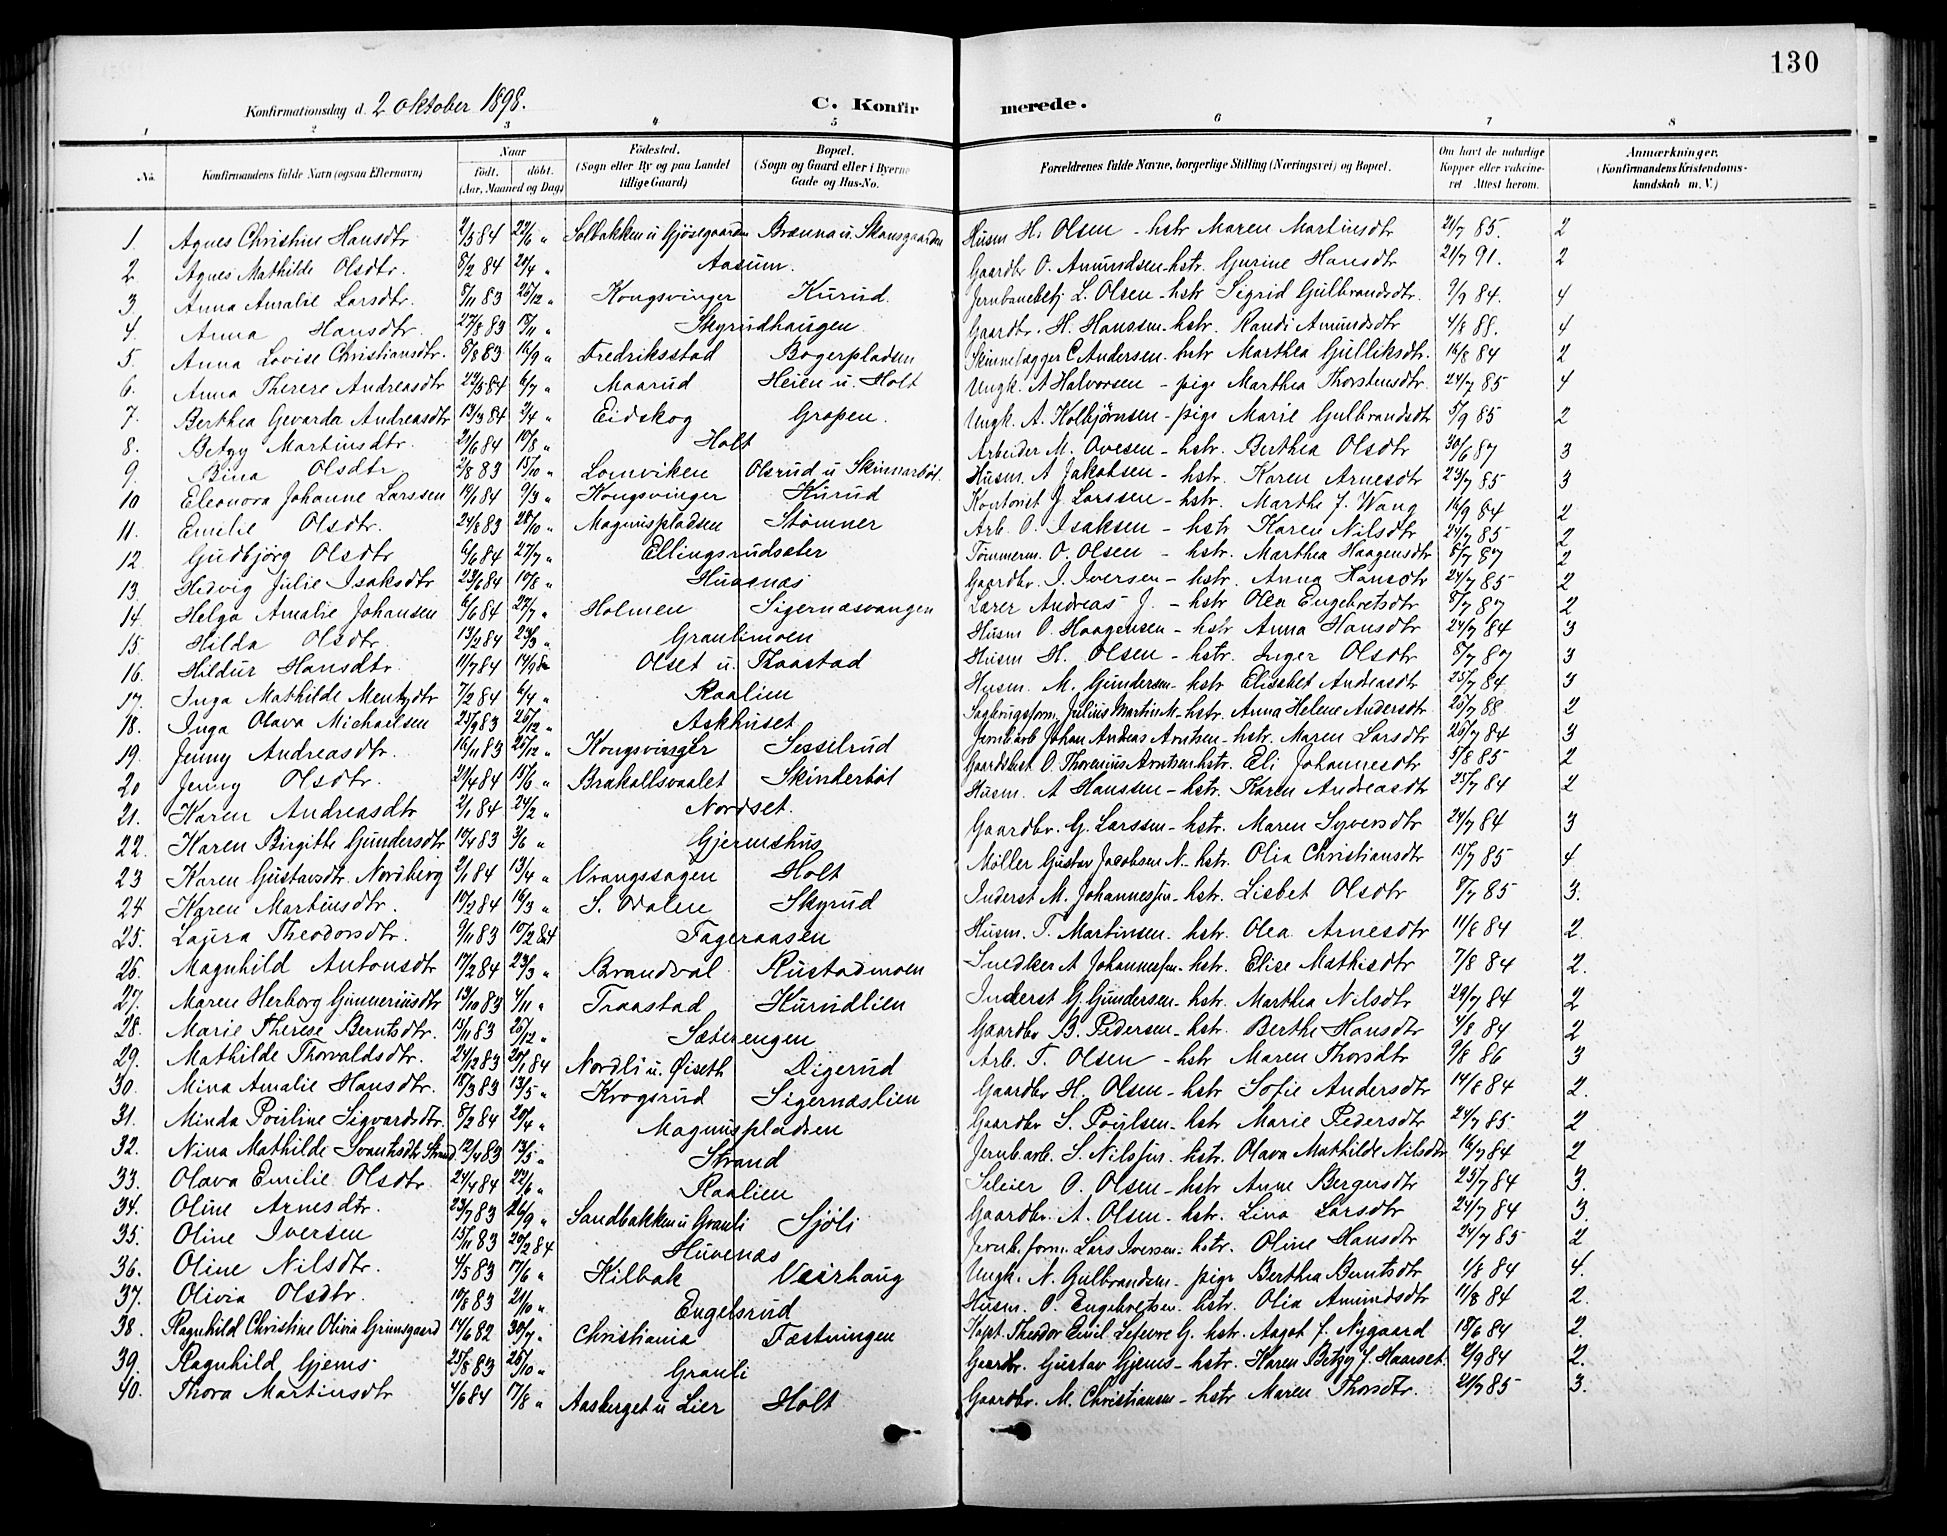 130
Konfirmationsdag d. 2 oktober 1898.
C. Konfirmerede.
1 2 3 4 5 6 7 8
No.
Konfirmandens fulde Navn (ogsaa Efternavn)
Naar født. døbt. (Aar, Maaned og Dag)
Fødested. (Sogn eller By og paa Landet tillige Gaard)
Bopæl. (Sogn og Gaard eller i Byerne Gade og Hus-No.
Forældrenes fulde Navne, borgerlige Stilling (Næringsvei) og Bopæl.
Om havt de naturlige Kopper eller vakcineret. Attest herom.
Anmærkninger. (Konfirmandens Kristendomskundskab m. V.)
1. Agnes Christine Hansdtr 2/5 84 22/6 " Solbakken u. Gjøsegaarden Brænna u. Skansgaarden Husm H. Olsen - hstr Maren Martinsdtr 21/7 85. 2
2. Agnes Mathilde Olsdtr. 8/2 84 20/4 " Aasum. Gaardbr O. Amundsen - hstr. Gurine Hansdtr 21/7 91. 2
3 Anna Amalie Larsdtr. 8/11 83 25/12 " Kongsvinger Kurud. Jernbanebetj L. Olsen - hstr Sigrid Gulbrandsdtr. 9/9 84. 4
4. Anna Hansdtr. 27/8 83 18/11 " Skyrudhaugen Gaardbr. H. Hanssen - hstr. Randi Amundsdtr 4/8 88. 4
5. Anna Lovise Christiansdtr. 8/8 83 16/9 " Fredriksstad Bogerpladsen Skinnelægger C Andersen - hstr Marthea Gulliksdtr. 16/8 84 2
6. Anna Therese Andreasdtr 22/5 84 6/7 " Maarud Heien u. Holt Ungk. A Halvorsen - pige Marthea Thorstensdtr. 24/7 85 4
7. Berthea Gevarda Andreasdtr 13/3 84 2/4 " Eidskog Gropen. Ungk. A. Kolbjørnsen - pige Marie Gulbrandsdtr 5/9 85 2
8. Betzy Martinsdtr. 21/6 84 10/8 " Holt Arbeider M. Ovesen - hstr. Berthea Olsdtr 30/6 87 3
9. Bina Olsdtr 2/8 83 15/10 " Lomviken Olsrud u Skinnarbøl. Husm. A Jakobsen - hstr. Karen Arnesdtr 23/7 85 3
10 Eleonora Johanne Larssen 19/1 84 9/3 " Kongsvinger Kurud Kontorist J. Larssen - hstr. Marthe f. Wang 16/9 84 2
11. Emilie Olsdtr. 24/8 83 28/10 " Magnuspladsen Stømner Arb. O. Isaksen - hstr Karen Nilsdtr 24/7 85 2
12. Gudbjörg Olsdtr 6/6 84 27/7 " Ellingsrudsæter Tømmerm. O. Olsen - hstr. Marthea Haagensdtr 8/7 87 2
13. Hedvig Julie Isaksdtr 23/6 84 10/8 " Huvenæs Gaardbr. I. Iversen - hstr. Anna Hansdtr 24/7 85 2
14. Helga Amalie Johansen 6/6 84 27/7 " Holmen Sigernæsvangen Lærer Andreas J. - hstr Olea Engebretsdtr 8/7 87 2
15. Hilda Olsdtr 13/2 84 23/3 " Granlimoen Husm O. Haagensen - hstr Anna Hansdtr 24/7 84 3
16. Hildur Hansdtr. 11/7 84 14/9 84 Olset u. Traastad Husm H. Olsen - hstr. Inger Olsdtr 8/7 87 3
17. Inga Mathilde Mentzdtr 7/2 84 6/4 " Raalien Husm. M. Gundersen - hstr Elisabet Andreasdtr 25/7 84 3
18. Inga Olava Michaelsen 25/9 83 26/12 " Askhuset Sagbrugsform. Julius Martin M - hstr. Anna Helene Andersdtr 25/7 88 2
19. Jenny Andreasdtr. 16/11 83 25/12 " Kongsvinger Sessilrud Jernbarb Johan Andreas Arntsen - hstr. Maren Larsdtr 25/7 84 3
20. Jenny Olsdtr. 29/4 84 15/6 " Brakallsvaalet Skinderböl Gaardbest O. Thorenius Arntsen hstr. Eli Johannesdtr 5/8 85 2
21. Karen Andreasdtr 2/1 84 24/2 " Nordset. Husm. A Hanssen - hstr. Karen Andreasdtr 25/7 84 2
22. Karen Birgitte Gundersdtr 10/4 83 3/6 " Gjermshus Gaardbr. G. Larssen - hstr. Maren Syversdtr 24/7 84 3
23 Karen Gustavsdtr. Nordberg 2/1 84 13/4 " Vrangssagen Holt Møller Gustav Jacobsen N. hstr. Olia Christiansdtr 15/7 85 4.
24 Karen Martinsdtr. 17/2 84 16/3 " S. Odalen Skyrud Inderst M. Johannessen - hstr. Lisbet Olsdtr 8/7 85 3.
25. Laura Theodorsdtr. 9/11 83 10/2 84 Fageraasen Husm. T. Martinsen - hstr. Olea Arnesdtr 11/8 84 2.
26. Magnhild Antonsdtr 17/2 84 23/3 " Brandval Rustadmoen Snedker A Johannessen - hstr. Elise Mathisdtr 7/8 84 2.
27. Maren Herborg Gunneriusdtr 13/10 83 4/11 " Traastad Kurudlien Inderst G. Gundersen - hstr. Marthea Nilsdtr 29/7 84 2
28. Marie Therese Berntsdtr. 15/11 83 25/12 " Sæterengen Gaardbr B. Pedersen - hstr. Berthe Hansdtr 4/8 84 2
29. Mathilde Thorvaldsdtr. 24/12 83 20/1 84 Nordli u. Øiseth Digerud Arb. T. Olsen - hstr Maren Thorsdtr 9/8 86 3
30. Mina Amalie Hansdtr. 18/3 83 13/5 " Krogsrud Sigernæslien Gaardbr H. Olsen - hstr Sofie Andersdtr 14/8 84 2.
31. Minda Pouline Sigvardsdtr. 8/2 84 20/4 " Magnuspladsen Gaardbr S. Poulsen - hstr Marie Pedersdtr 24/7 85 2
32. Nina Mathilde Svantesdtr Strand 12/4 83 13/5 " Strand Jernb.arb. S. Nilssen - hstr. Olava Mathilde Nilsdtr 16/7 84 2
33. Olava Emilie Olsdtr 24/4 84 22/6 " Raalien Seleier O. Olsen - hstr Anne Bergersdtr 25/7 84 3.
34. Oline Arnesdtr. 23/7 83 26/9 " Sandbakken u Granli Sjöli Gaardbr. A. Olsen - hstr. Lina Larsdtr 24/7 84 3.
35. Oline Iversen 15/11 83 20/2 84 Huvenæs Jernb. form. Lars Iversen. hstr. Oline Hansdtr 24/7 85 2
36. Oline Nilsdtr. 4/5 83 17/6 " Kilbak Veirhaug Ungk. N. Gulbrandsen - pige Berthea Berntsdtr 1/8 84 4.
37. Olivia Olsdtr. 19/8 83 21/10 " Engelsrud Husm. O. Engebretsen - hstr. Olia Amundsdtr 11/8 84 2.
38. Ragnhild Christine Olivia Grimsgaard 14/6 82 30/7 " Christiania Fæstningen Kapt. Theodor Emil Lefevre G. hstr. Aagot f. Nygaard 18/6 84 2.
39. Ragnhild Gjems 25/8 83 26/10 " Granli Gaardbr. Gustav Gjems - hstr. Karen Betzy f. Haarset 2/9 84 2.
40. Thora Martinsdtr 4/6 84 17/8 " Aasberget u Lier Holt Gaardbr. M. Christiansen - hstr Maren Thorsdtr. 21/7 85 3.